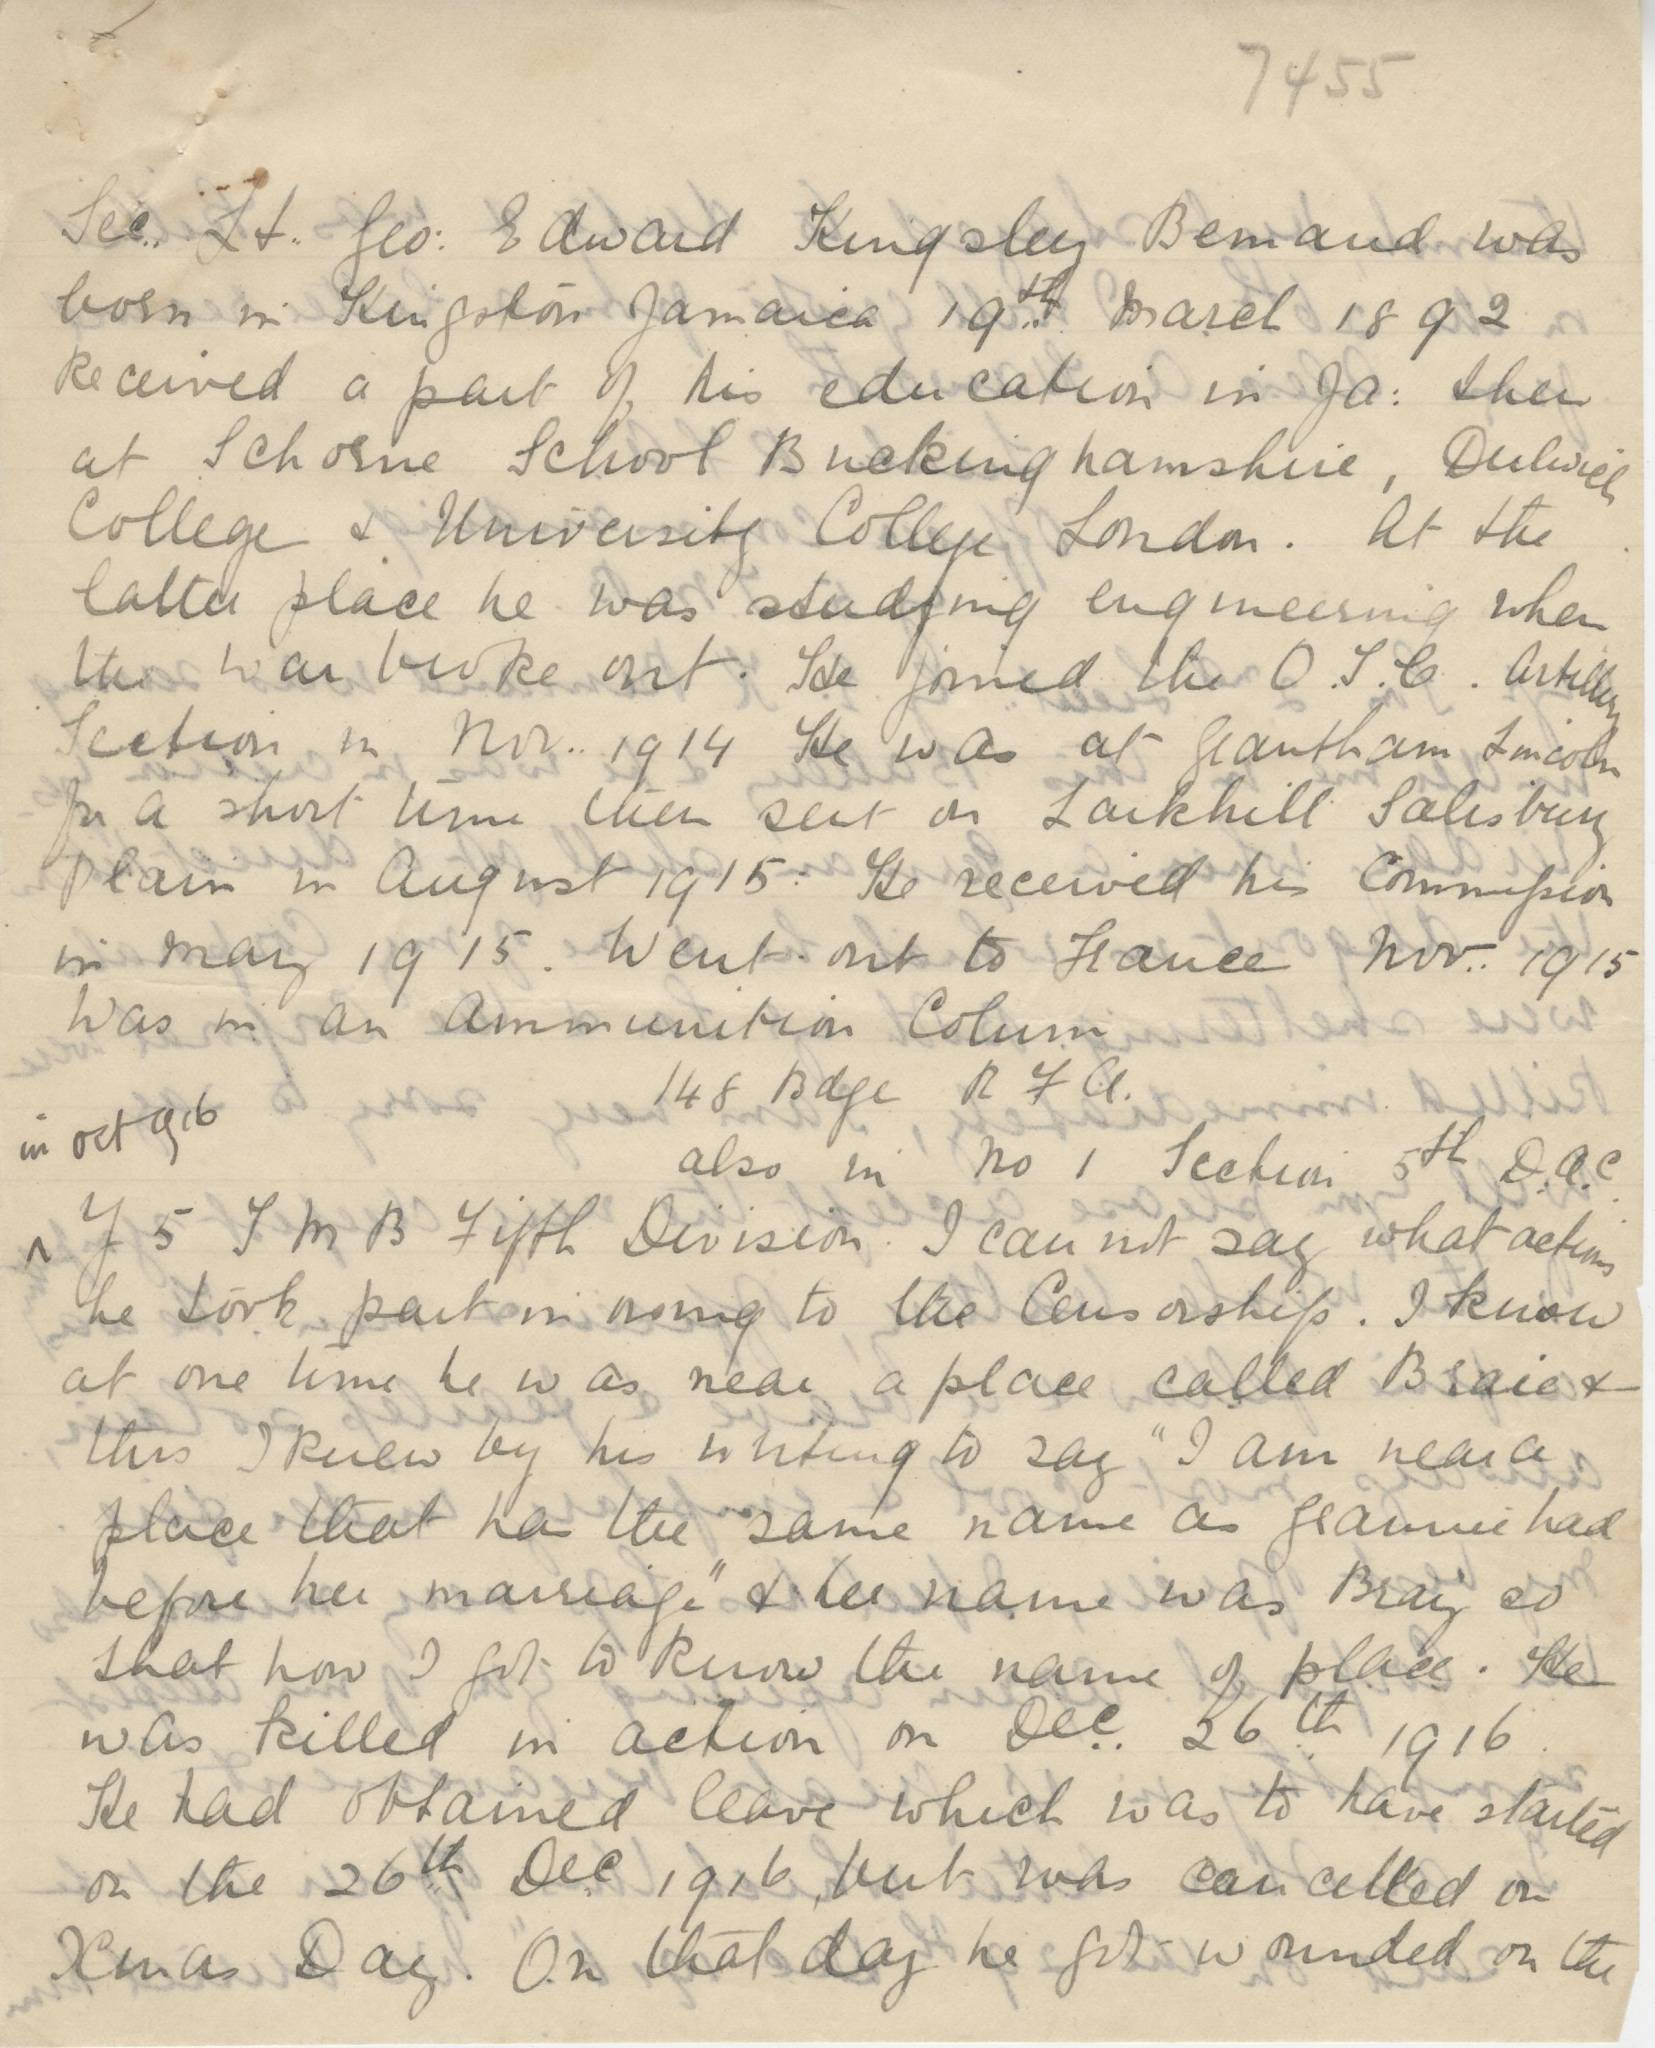 7455
Sec. Lt. Geo: Edward Kingsley Bemand was
born in Kingston Jamaica 19th March 1892
Received a part of his education in Ja: then
at Schorne School Buckinghamshire, Dulwich
College & University College London. At the
latter place he was studying engineering when
the war broke out. He joined the O.T.C. Artillery
Section in Nov. 1914 He was at Grantham Lincoln
for a short time then sent on Larkhill Salisbury
Plain in August 1915. He received his Commission
in May 1915. Went out to France Nov. 1915
Was in an Ammunition Colum
148 Bdge R F A.
also in No 1 Section 5th D.A.C.
in Oct 1916
^ Y 5 T M B Fifth Division. I can not say what actions
he took part in owing to the Censorship. I know
at one time he was near a place called Braie &
this I knew by his writing to say "I am near a
place that has the same name as Grannie had
before her marriage" & her name was Bray so
that how I got to know the name of place. He
was killed in action on Dec. 26th 1916.
He had obtained leave which was to have started
on the 26th Dec 1916, but was cancelled on
Xmas Day. On that day he got wounded on the